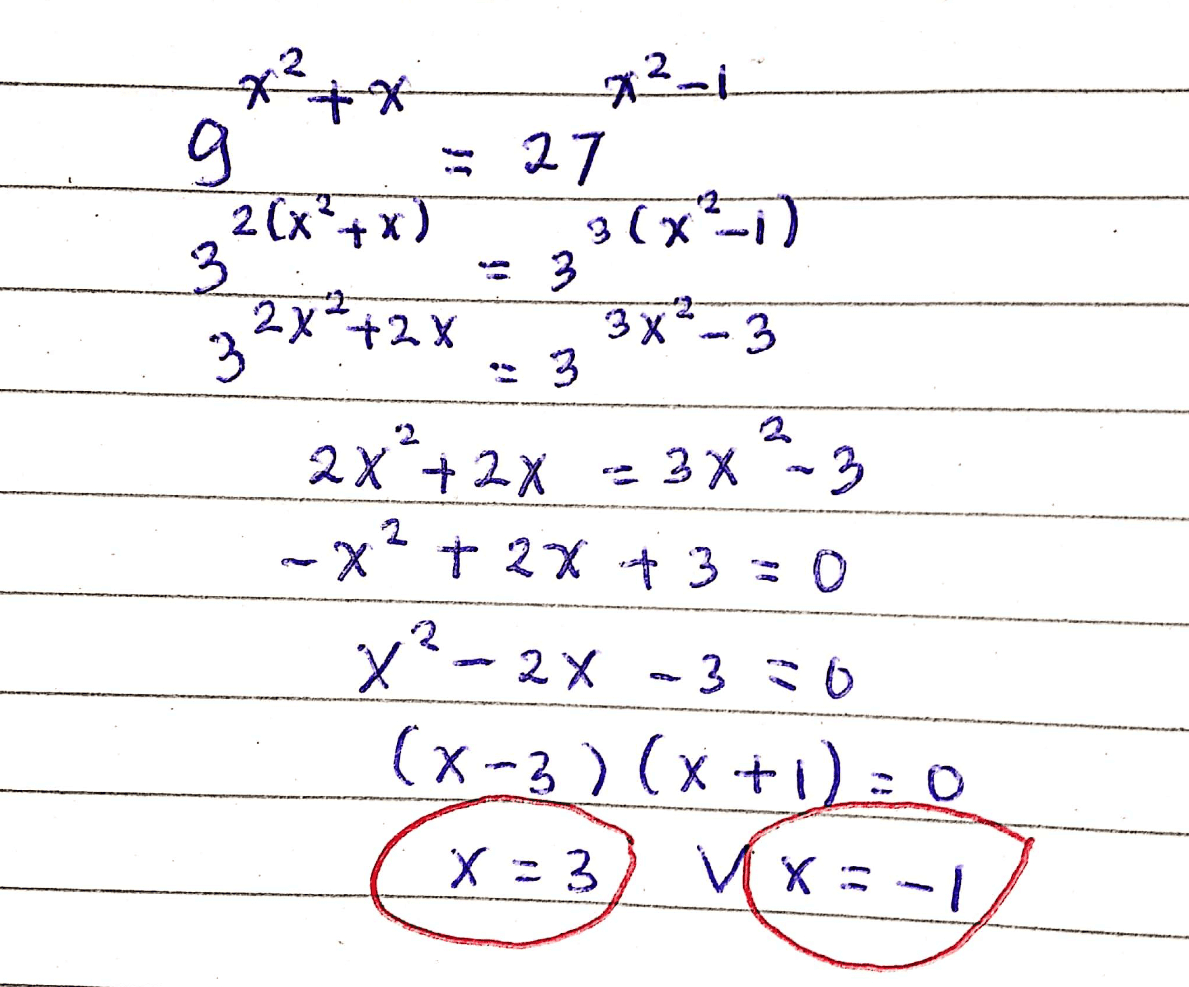 9^{x^2+x} = 27^{x^2-1}
3^{2(x^2+x)} = 3^{3(x^2-1)}
3^{2x^2+2x} = 3^{3x^2-3}
2x^2+2x = 3x^2-3
-x^2+2x+3=0
x^2-2x-3=0
(x-3)(x+1)=0
x=3 ∨ x=-1